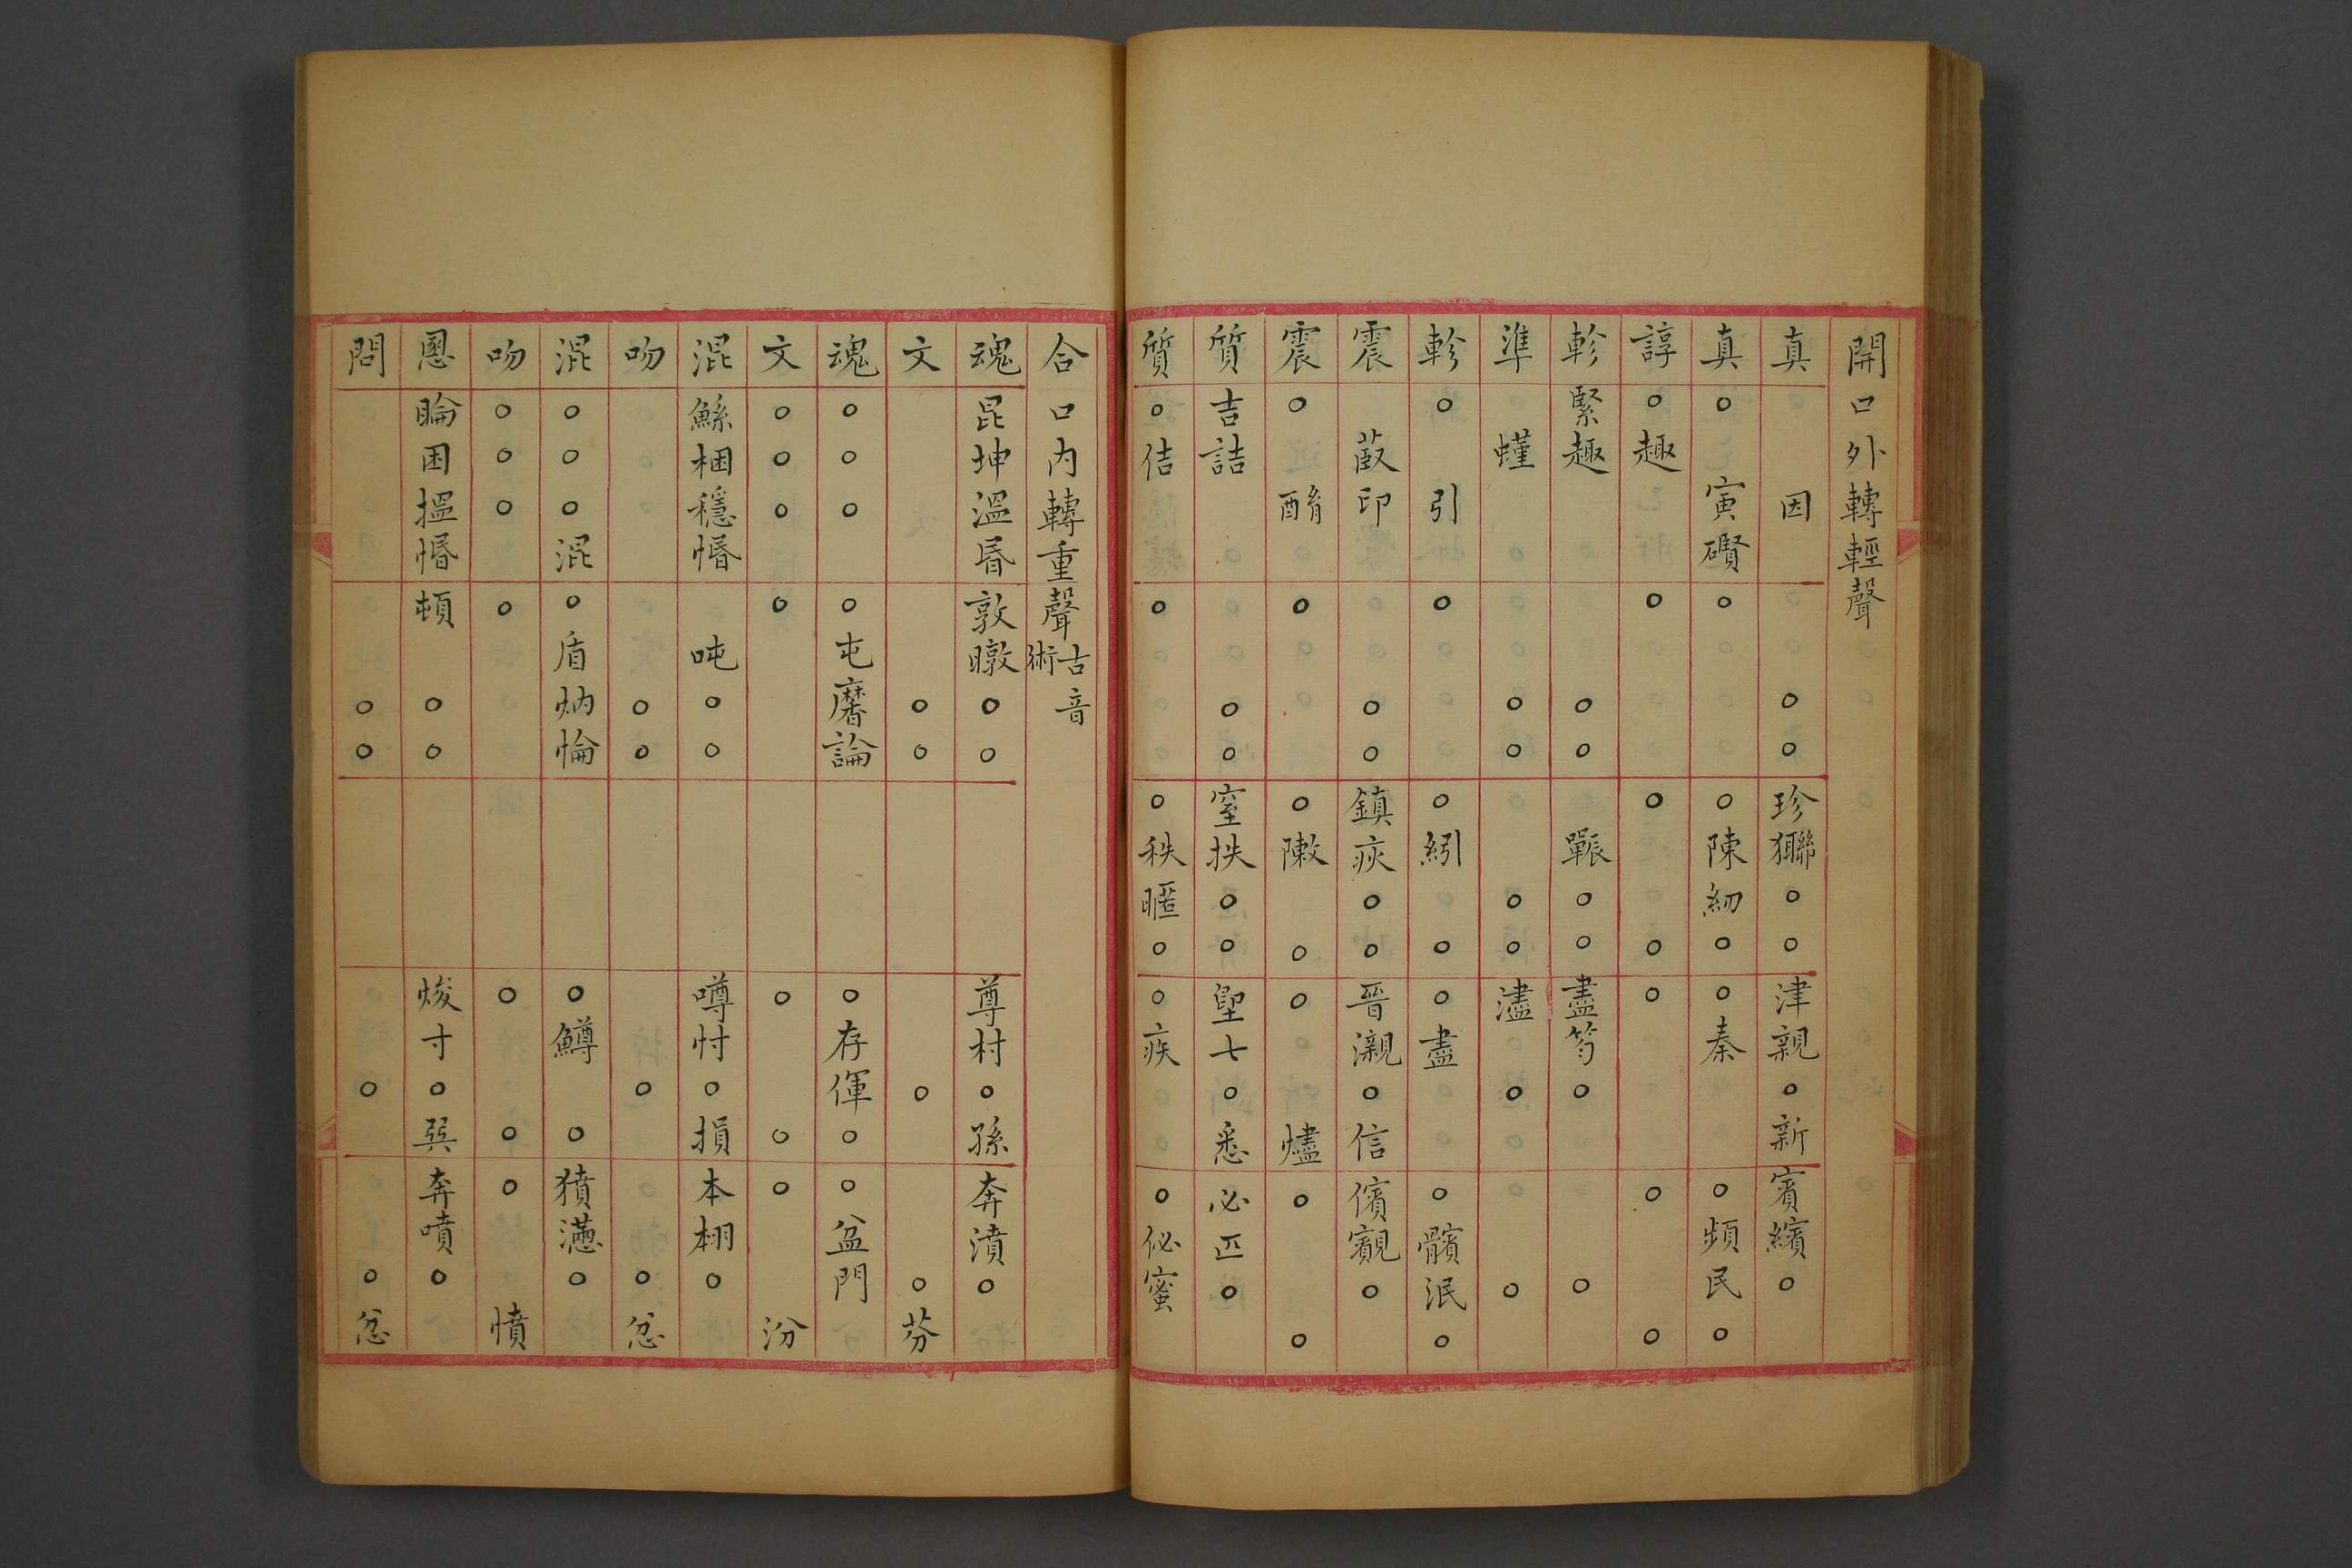 開口外轉輕聲
真因○○珍㺦○○津親○新賓繽○
真○寅礥○○陳紉○○秦○頻民○
諄○趣○○○○○○
軫緊趣○○辴○○盡笉○○
準螼○○○○濜○○
軫○引○○紖○○盡○髕泯○
震菣印○○鎮疢○○晉瀙○信儐覸○
震○酳○○敶○○燼○○
質吉詰○○窒抶○○堲七○悉必匹○
質○佶○○秩暱○○疾○佖蜜
合口內轉重聲古音術
魂昆坤溫昏敦暾○○尊村○孫奔濆○
文○○○○芬
魂○○○○屯黁論○存㑮○○盆門
文○○○○○○○汾
混鯀梱穩惛吨○○噂忖○損本栩○
吻○○○○忿
混○○○混○盾炳惀○鱒○獖懣○
吻○○○○○○○憤
慁睔困搵惛頓○○焌寸○巽奔噴○
問○○○○忿